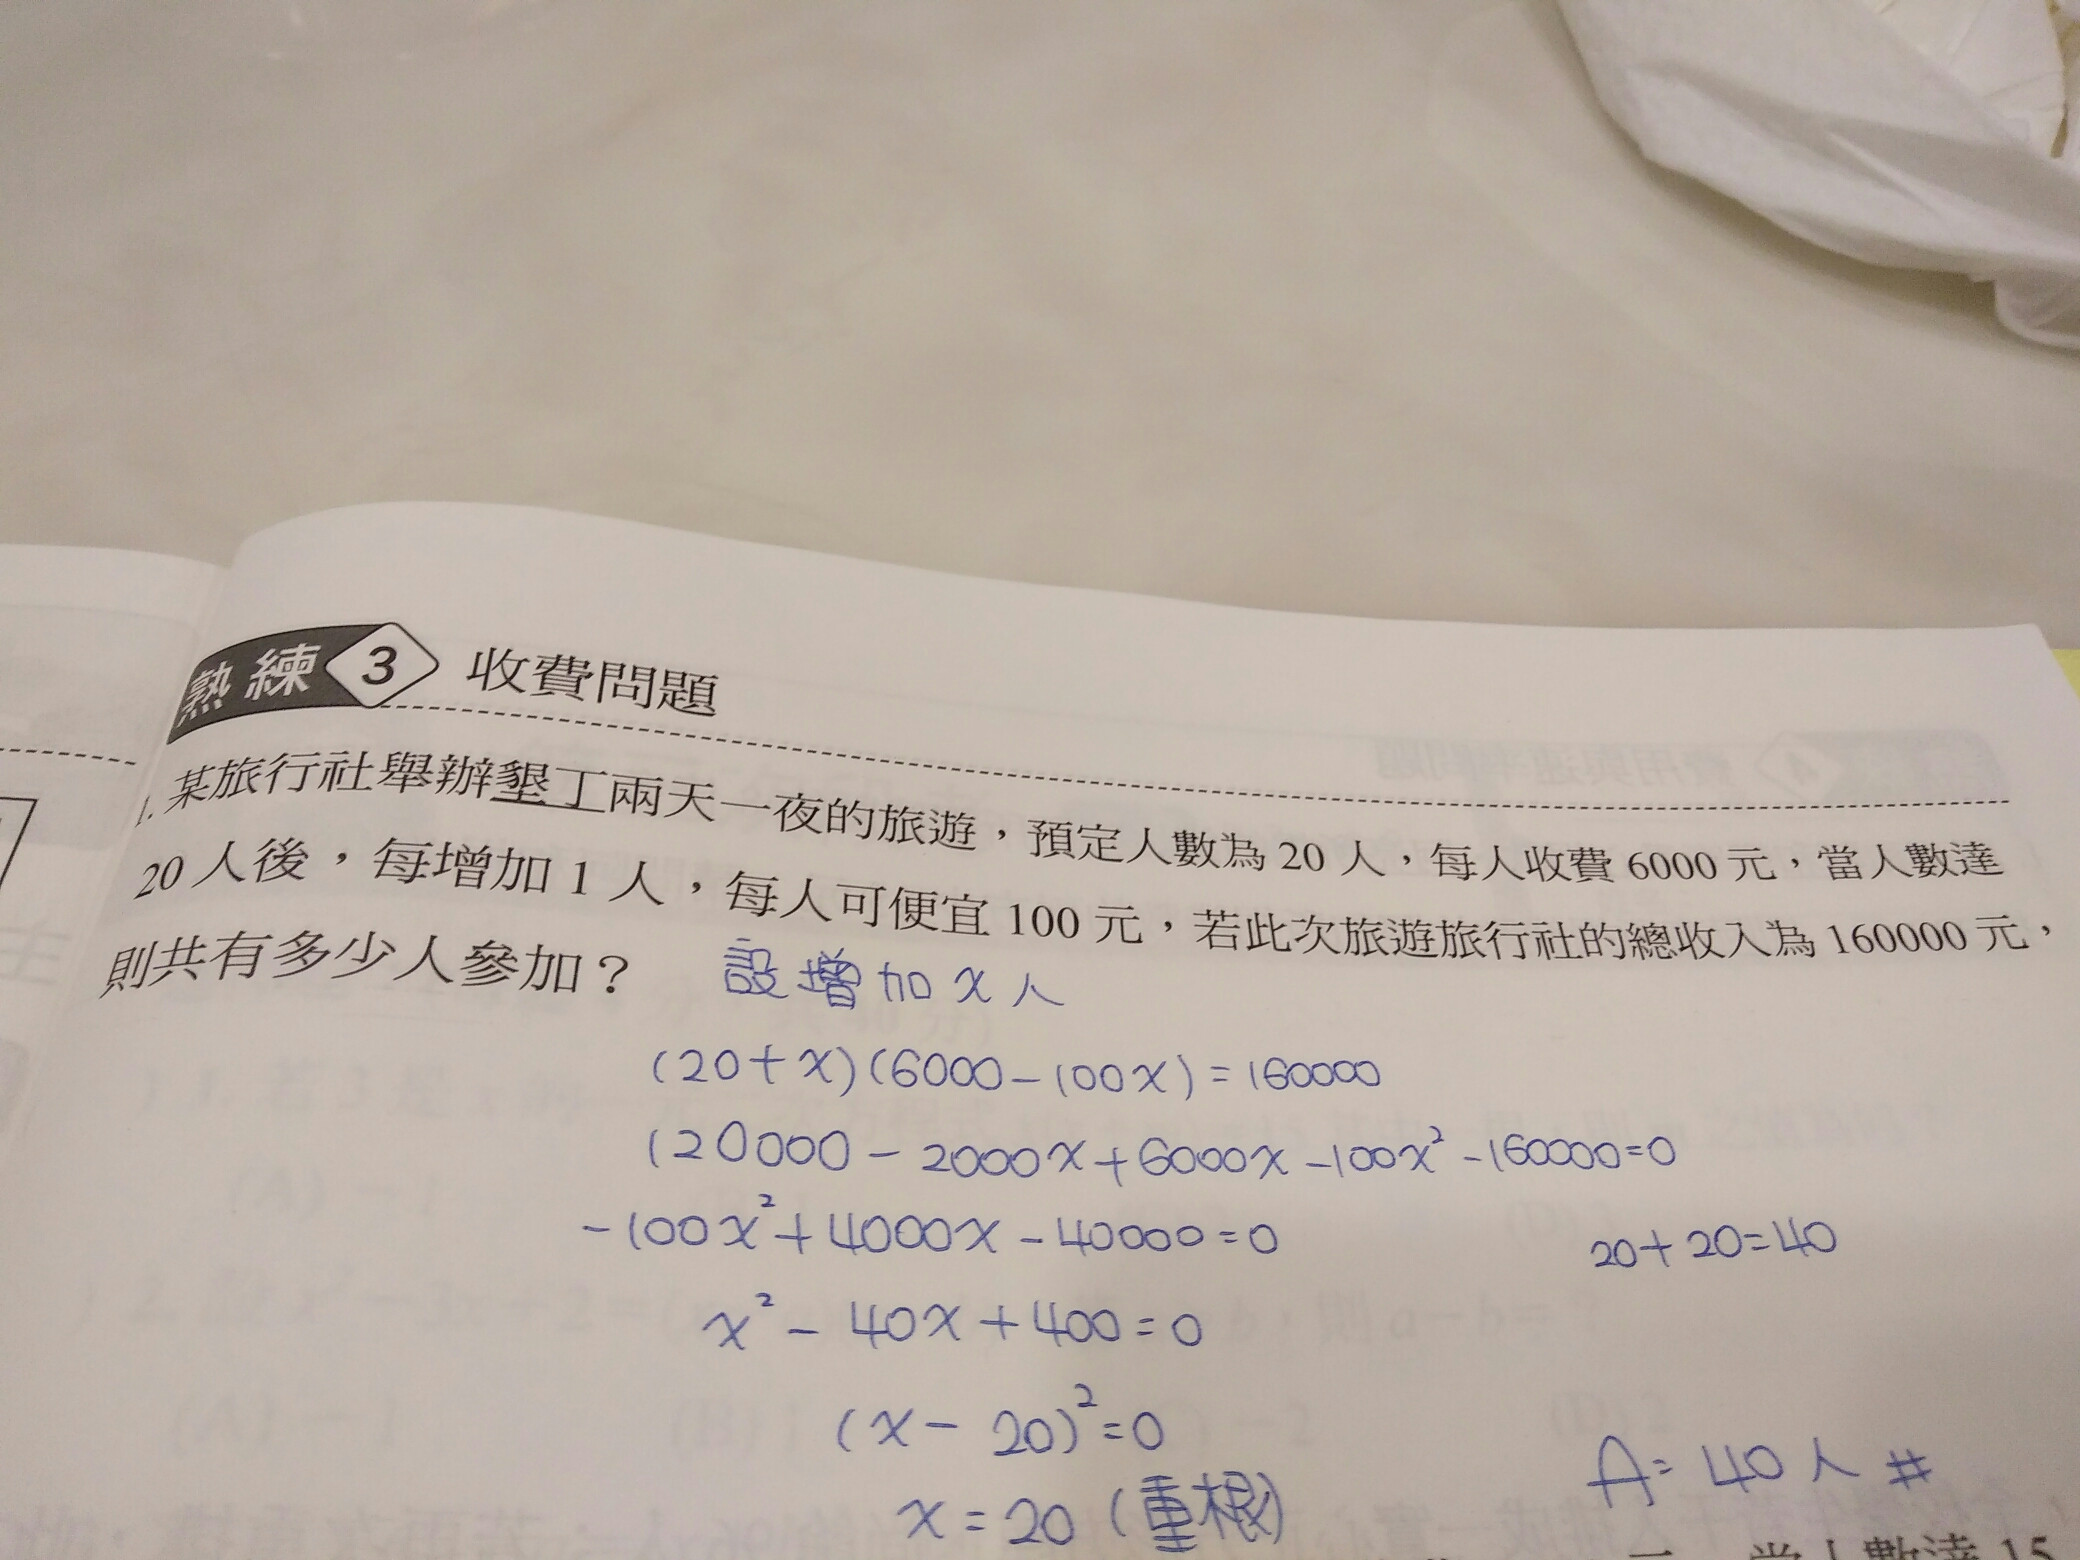 熟練 3 收費問題
1. 某旅行社舉辦墾丁兩天一夜的旅遊，預定人數為 20 人，每人收費 6000 元，當人數達
20 人後，每增加 1 人，每人可便宜 100 元，若此次旅遊旅行社的總收入為 160000 元，
則共有多少人參加？ 設增加 x 人
(20+x)(6000-100x)=160000
120000-2000x+6000x-100x²-160000=0
-100x²+4000x-40000=0
20+20=40
x²-40x+400=0
(x-20)²=0
A=40人#
x=20(重根)
當人數達 15